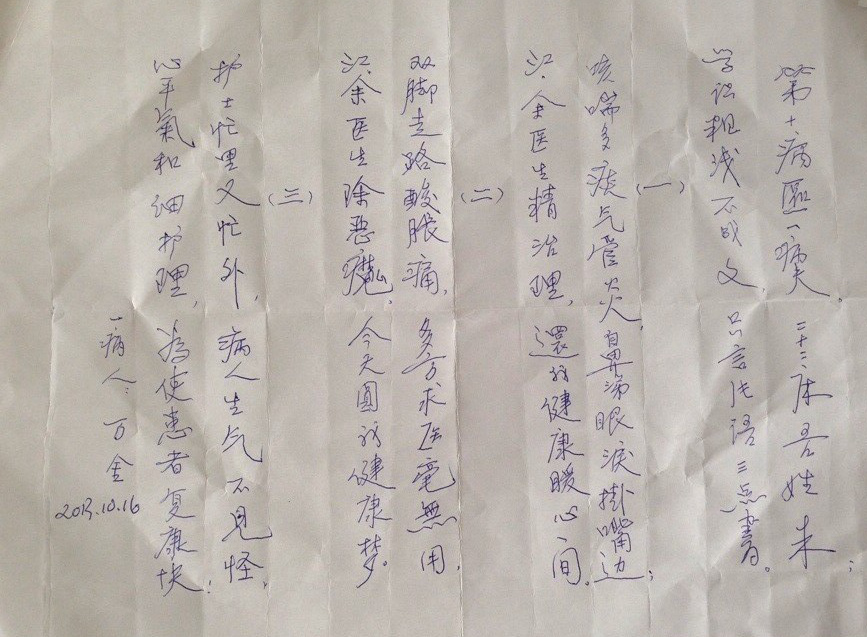 第十病區一病夫，二十三床吾姓朱；
学识粗浅不成文，只言片语三点書。
（一）
咳喘多痰气管炎，鼻涕眼淚掛嘴边；
江、余医生精治理，還我健康暖心间。
（二）
双脚走路酸胀痛，多方求医毫無用，
江、余医生除恶魔，今天圆我健康梦。
（三）
护士忙里又忙外，病人生气不見怪，
心平氣和细护理，為使患者复康快；
一病人：万金
2013.10.16